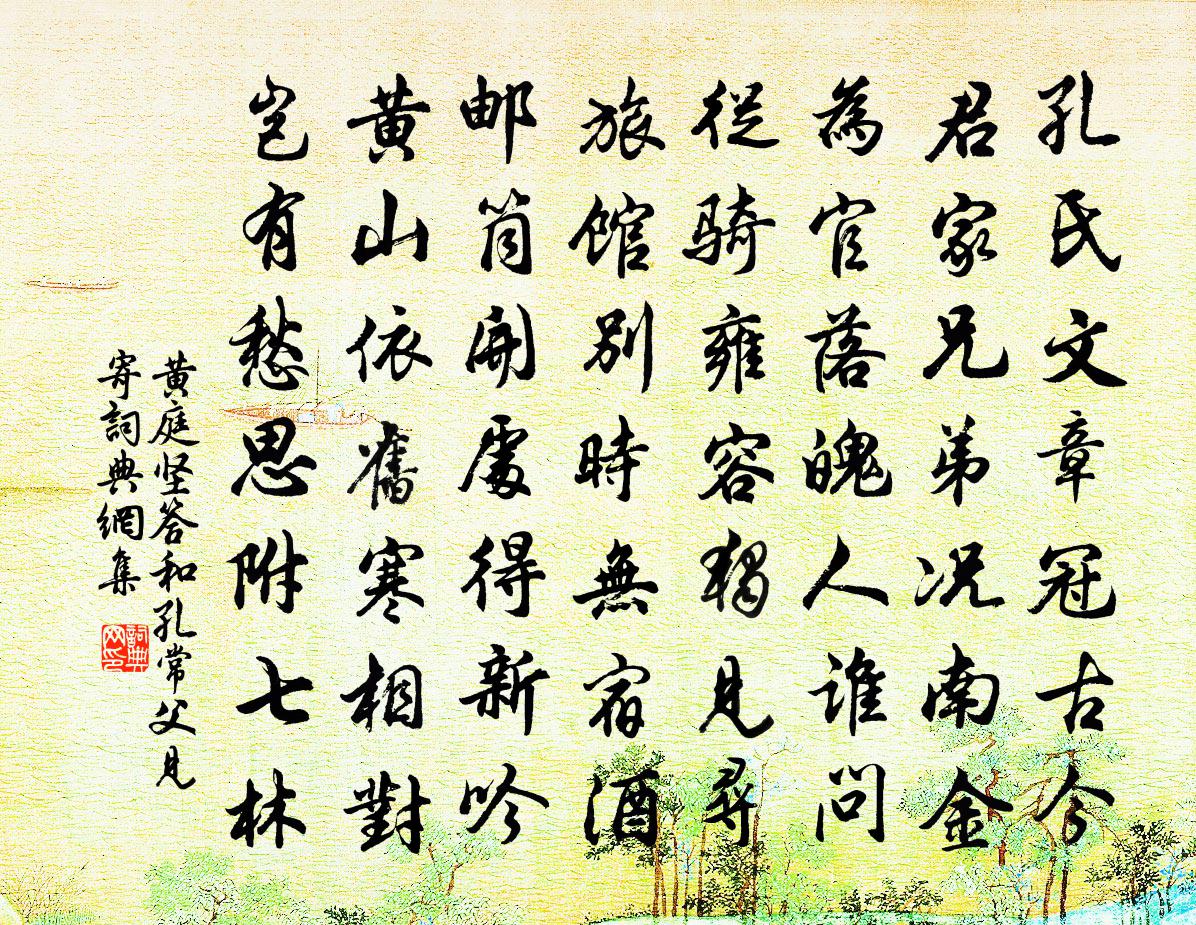 孔氏文章冠古今
君家兄弟况南金
為官落魄人誰问
從骑雍容独見尋
旅館别時無宿酒
邮筒開處得新吟
黄山依舊寒相對
岂有愁思附七林
黄庭坚答和孔常父見
寄詞典網集
詞典网印